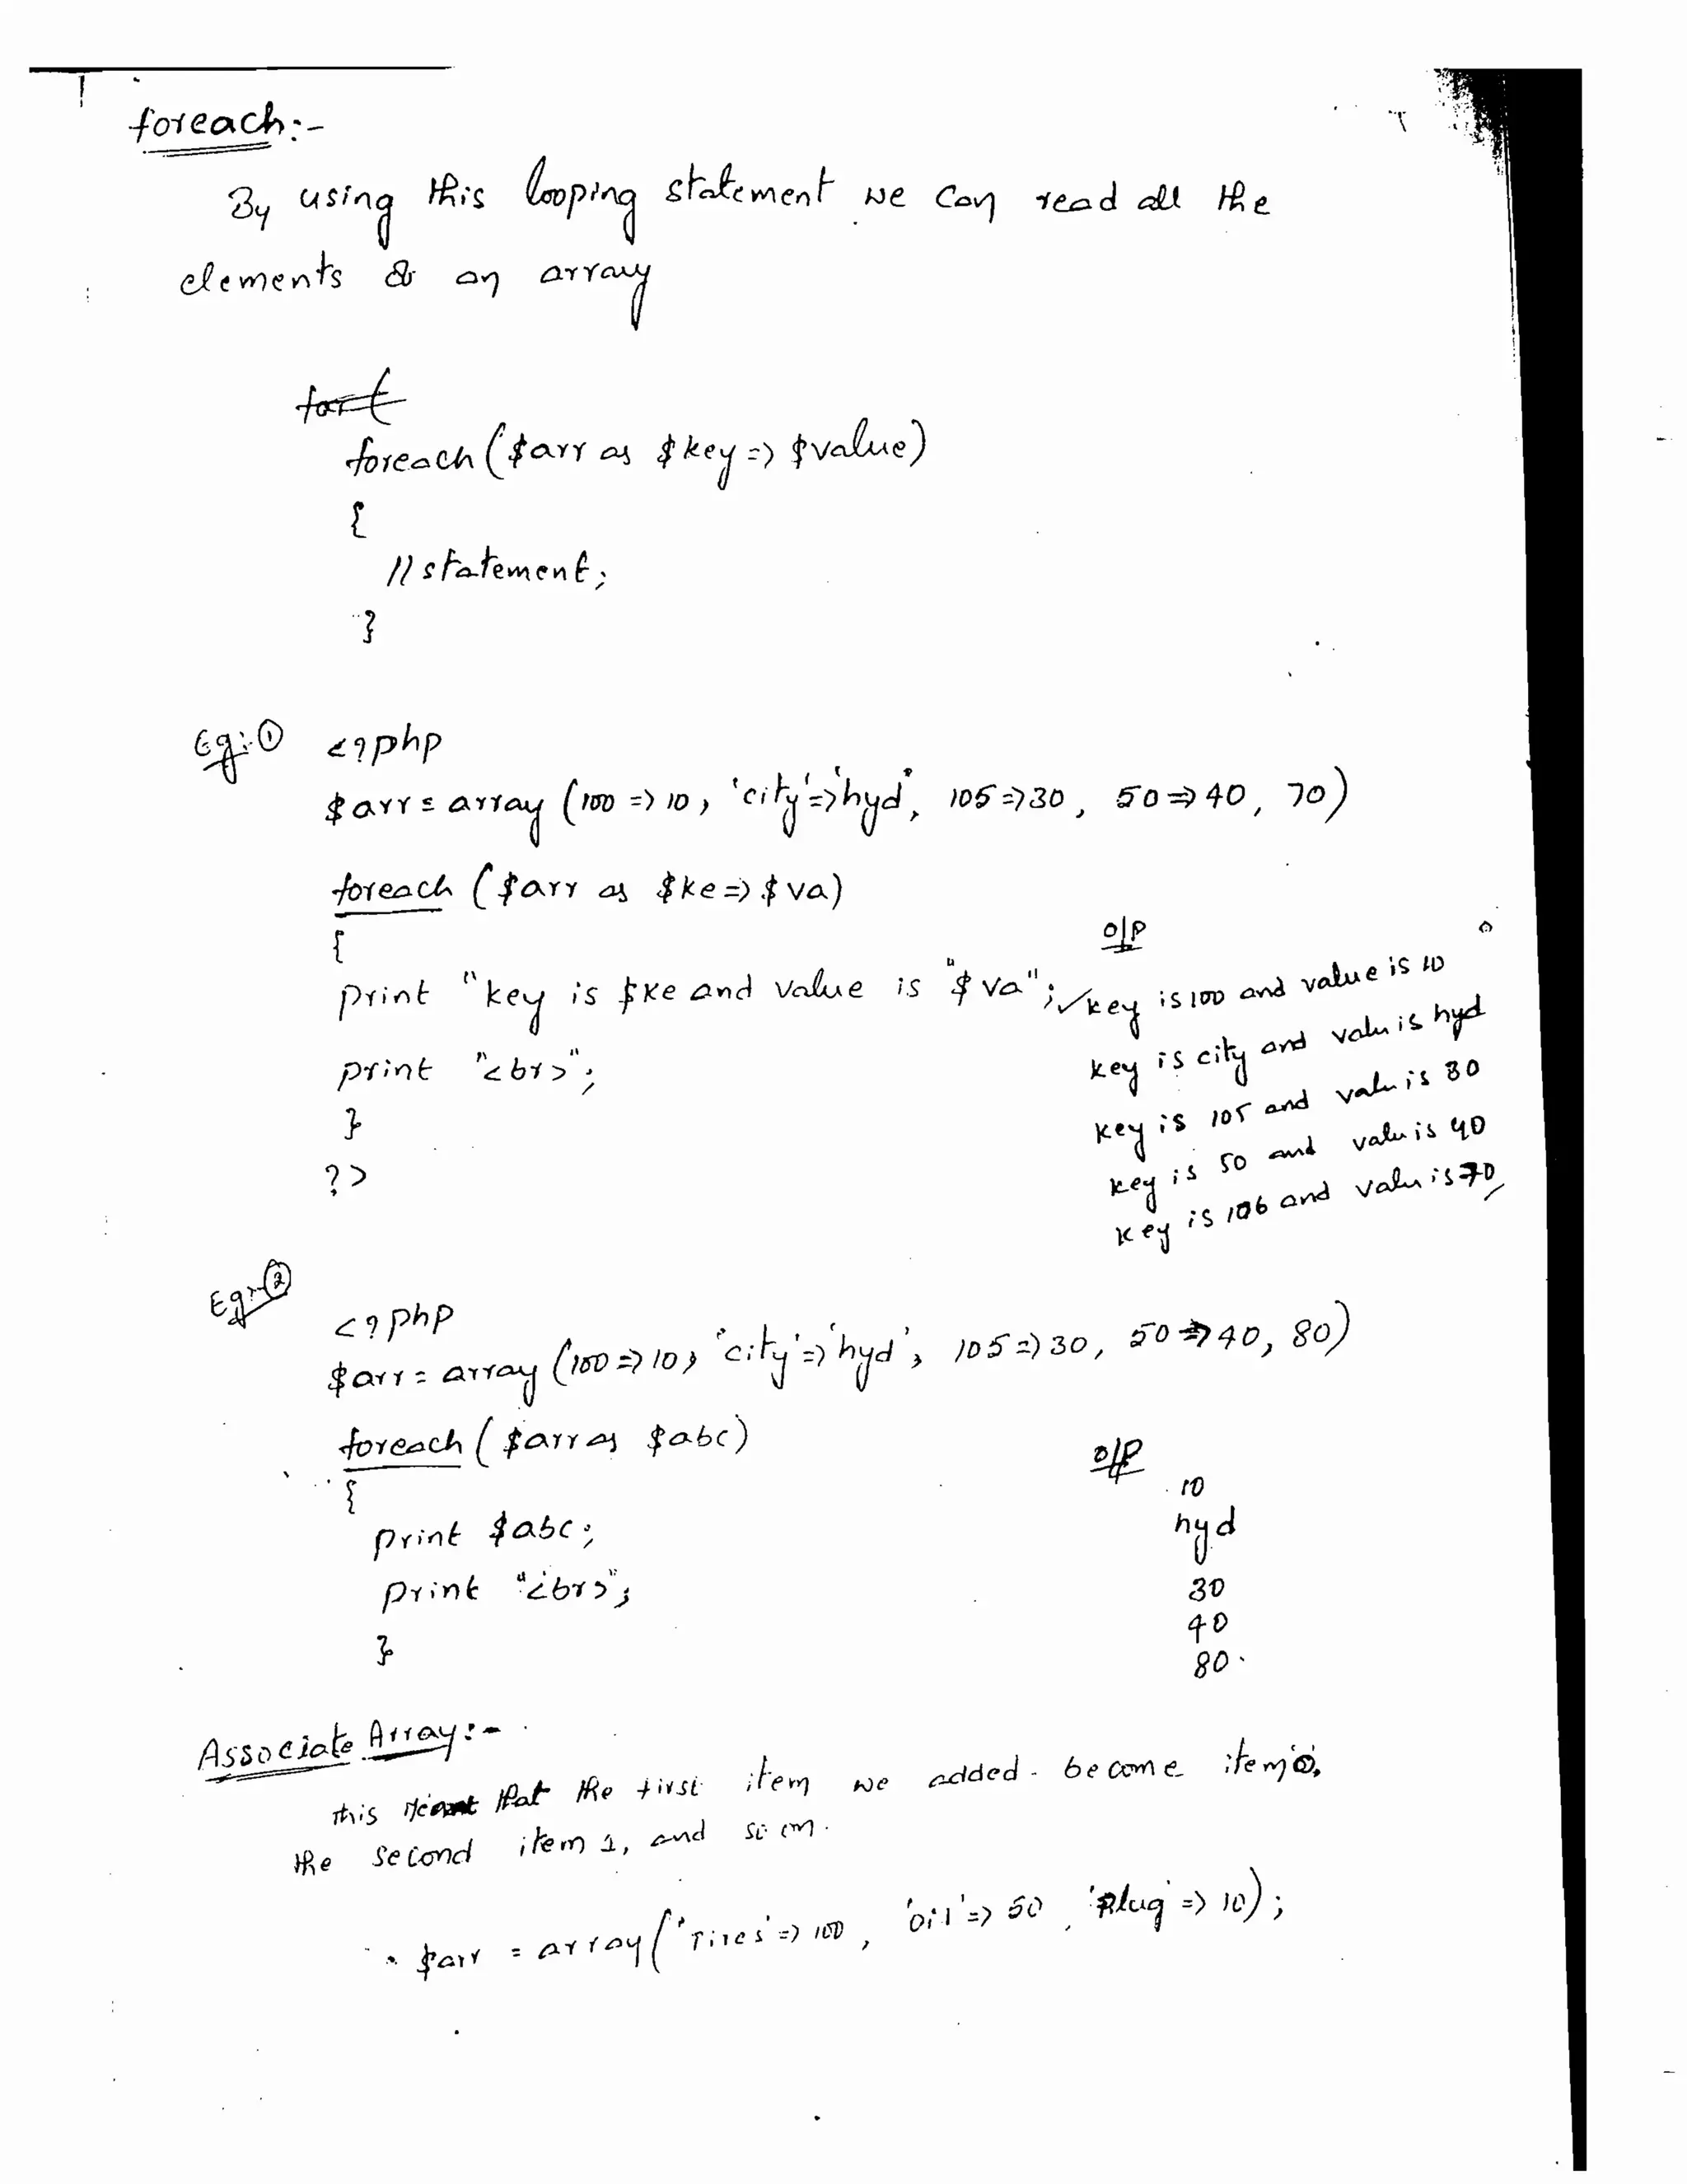 foreach:-
By using this looping statement we can read all the
elements of an array
for(
foreach ($arr as $key => $value)
{
//statement;
}
Eg:① <?php
$arr = array (100 => 10, 'city'=>'hyd', 105=>30, 50=>40, 70)
foreach ($arr as $ke=>$va)
{
print "key is $ke and value is "$va";
print "<br>";
}
?>
o/p
key is 100 and value is 10
key is city and valu is hyd
key is 105 and valu is 30
key is 50 and valu is 40
key is 106 and valu is 70
Eg:-②
<?php
$arr = array (100=>10, 'city'=>'hyd', 105=>30, 50=>40, 80)
foreach ($arr as $abc)
{
print $abc;
print "<br>";
}
o/p
10
hyd
30
40
80.
Associate Array:-
this that the first item we added become item 0,
the second item 1, and so on.
$arr = array('Tires'=>100, 'oil'=>50, 'Plug'=>10);